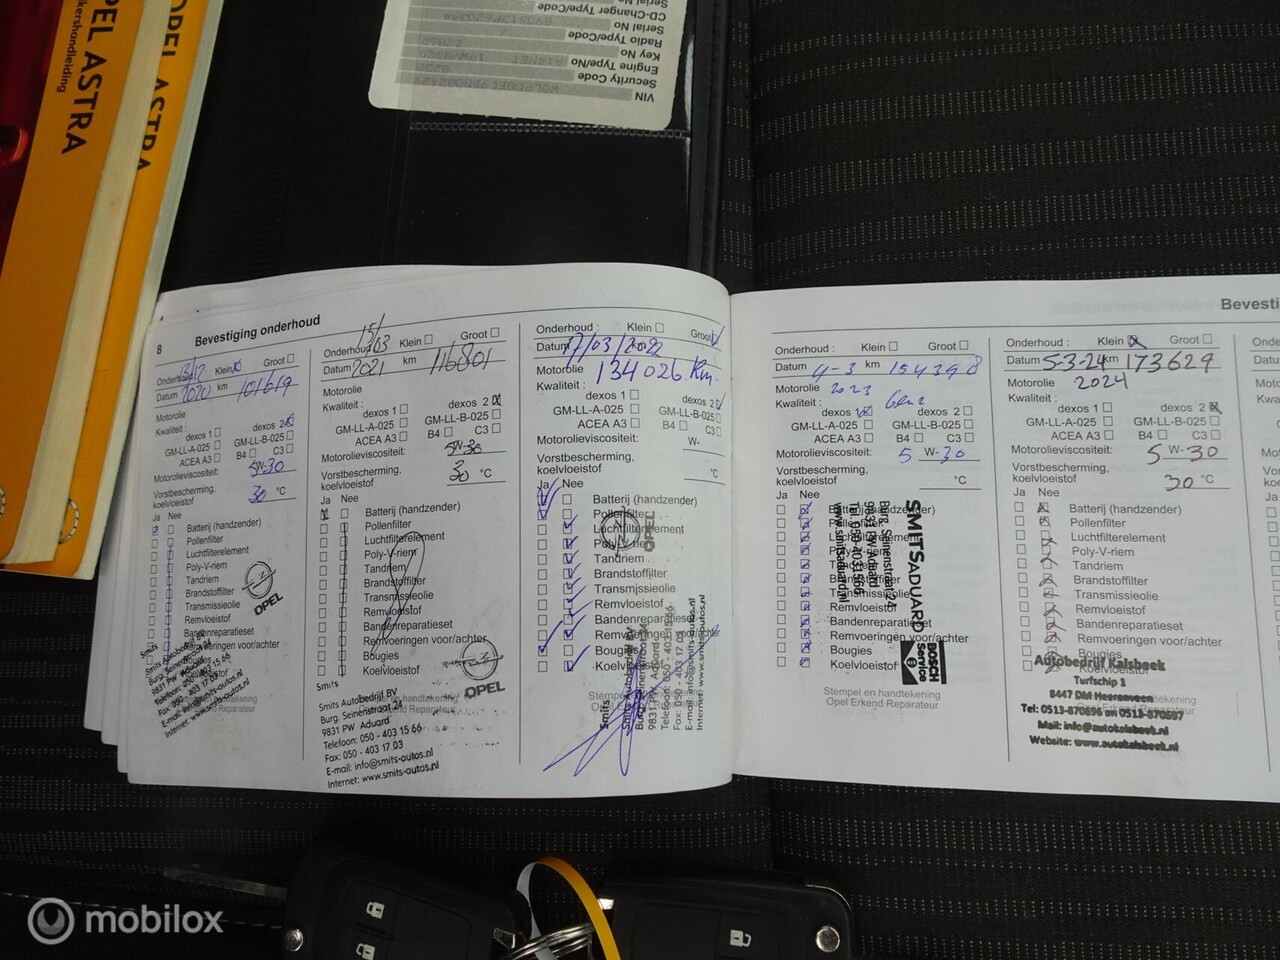 OPEL ASTRA
OPEL ASTRA
VIN
Security Code
Engine Type/No
Key No
Radio Type/Code
Serial No
CD-Changer Type/Code
Serial No
8
Bevestiging onderhoud
Onderhoud
Klein
Groot
Datum 2020 km 101619
Motorolie
Kwaliteit :
dexos 1 dexos 2
GM-LL-A-025 GM-LL-B-025
ACEA A3 B4 C3
Motorolieviscositeit: 5W-30
Vorstbescherming,
koelvloeistof 30 °C
Ja Nee
Batterij (handzender)
Pollenfilter
Luchtfilterelement
Poly-V-riem
Tandriem
Brandstoffilter
Transmissieolie
Remvloeistof
Bandenreparatieset
OPEL
Smits Autobedrijf BV
Burg. Seinenstraat 24
9831 PW Aduard
Telefoon: 050 - 403 15 66
Fax: 050 - 403 17 03
E-mail: info@smits-autos.nl
Internet: www.smits-autos.nl
Onderhoud 15/03 Klein Groot
Datum 2021 km 116801
Motorolie
Kwaliteit :
dexos 1 dexos 2
GM-LL-A-025 GM-LL-B-025
ACEA A3 B4 C3
Motorolieviscositeit: 5W-30
Vorstbescherming,
koelvloeistof 30 °C
Ja Nee
Batterij (handzender)
Pollenfilter
Luchtfilterelement
Poly-V-riem
Tandriem
Brandstoffilter
Transmissieolie
Remvloeistof
Bandenreparatieset
Remvoeringen voor/achter
Bougies
Koelvloeistof
OPEL
Smits
Smits Autobedrijf BV
Burg. Seinenstraat 24
9831 PW Aduard
Telefoon: 050 - 403 15 66
Fax: 050 - 403 17 03
E-mail: info@smits-autos.nl
Internet: www.smits-autos.nl
Onderhoud : Klein Groot
Datum 17/03/2022 km
Motorolie 134026 Km.
Kwaliteit :
dexos 1 dexos 2
GM-LL-A-025 GM-LL-B-025
ACEA A3 B4 C3
Motorolieviscositeit: W-
Vorstbescherming,
koelvloeistof °C
Ja Nee
Batterij (handzender)
Pollenfilter
Luchtfilterelement
Poly-V-riem
Tandriem
Brandstoffilter
Transmissieolie
Remvloeistof
Bandenreparatieset
Remvoeringen voor/achter
Bougies
Koelvloeistof
OPEL
Stempel en handtekening
Opel Erkend Reparateur
Bevesti
Onderhoud : Klein Groot
Datum 4-3 km 154398
Motorolie 2023
Kwaliteit :
dexos 1 dexos 2
GM-LL-A-025 GM-LL-B-025
ACEA A3 B4 C3
Motorolieviscositeit: 5 W-30
Vorstbescherming,
koelvloeistof °C
Ja Nee
Remvloeistof
Bandenreparatieset
Remvoeringen voor/achter
Bougies
Koelvloeistof
SMITSADUARD
Burg. Seinenstraat 24
9831 PW Aduard
www.smitsaduard.nl
BOSCH
Service
Stempel en handtekening
Opel Erkend Reparateur
Onderhoud : Klein Groot
Datum 5-3-24 km 173629
Motorolie 2024
Kwaliteit :
dexos 1 dexos 2
GM-LL-A-025 GM-LL-B-025
ACEA A3 B4 C3
Motorolieviscositeit: 5 W-30
Vorstbescherming,
koelvloeistof 30 °C
Ja Nee
Batterij (handzender)
Pollenfilter
Luchtfilterelement
Poly-V-riem
Tandriem
Brandstoffilter
Transmissieolie
Remvloeistof
Bandenreparatieset
Remvoeringen voor/achter
Bougies
Autobedrijf Kalsbeek
Turfschip 1
8447 DM Heerenveen
Tel: 0513-870696 en 0513-870697
Mail: info@autokalsbeek.nl
Website: www.autokalsbeek.nl
mobilox